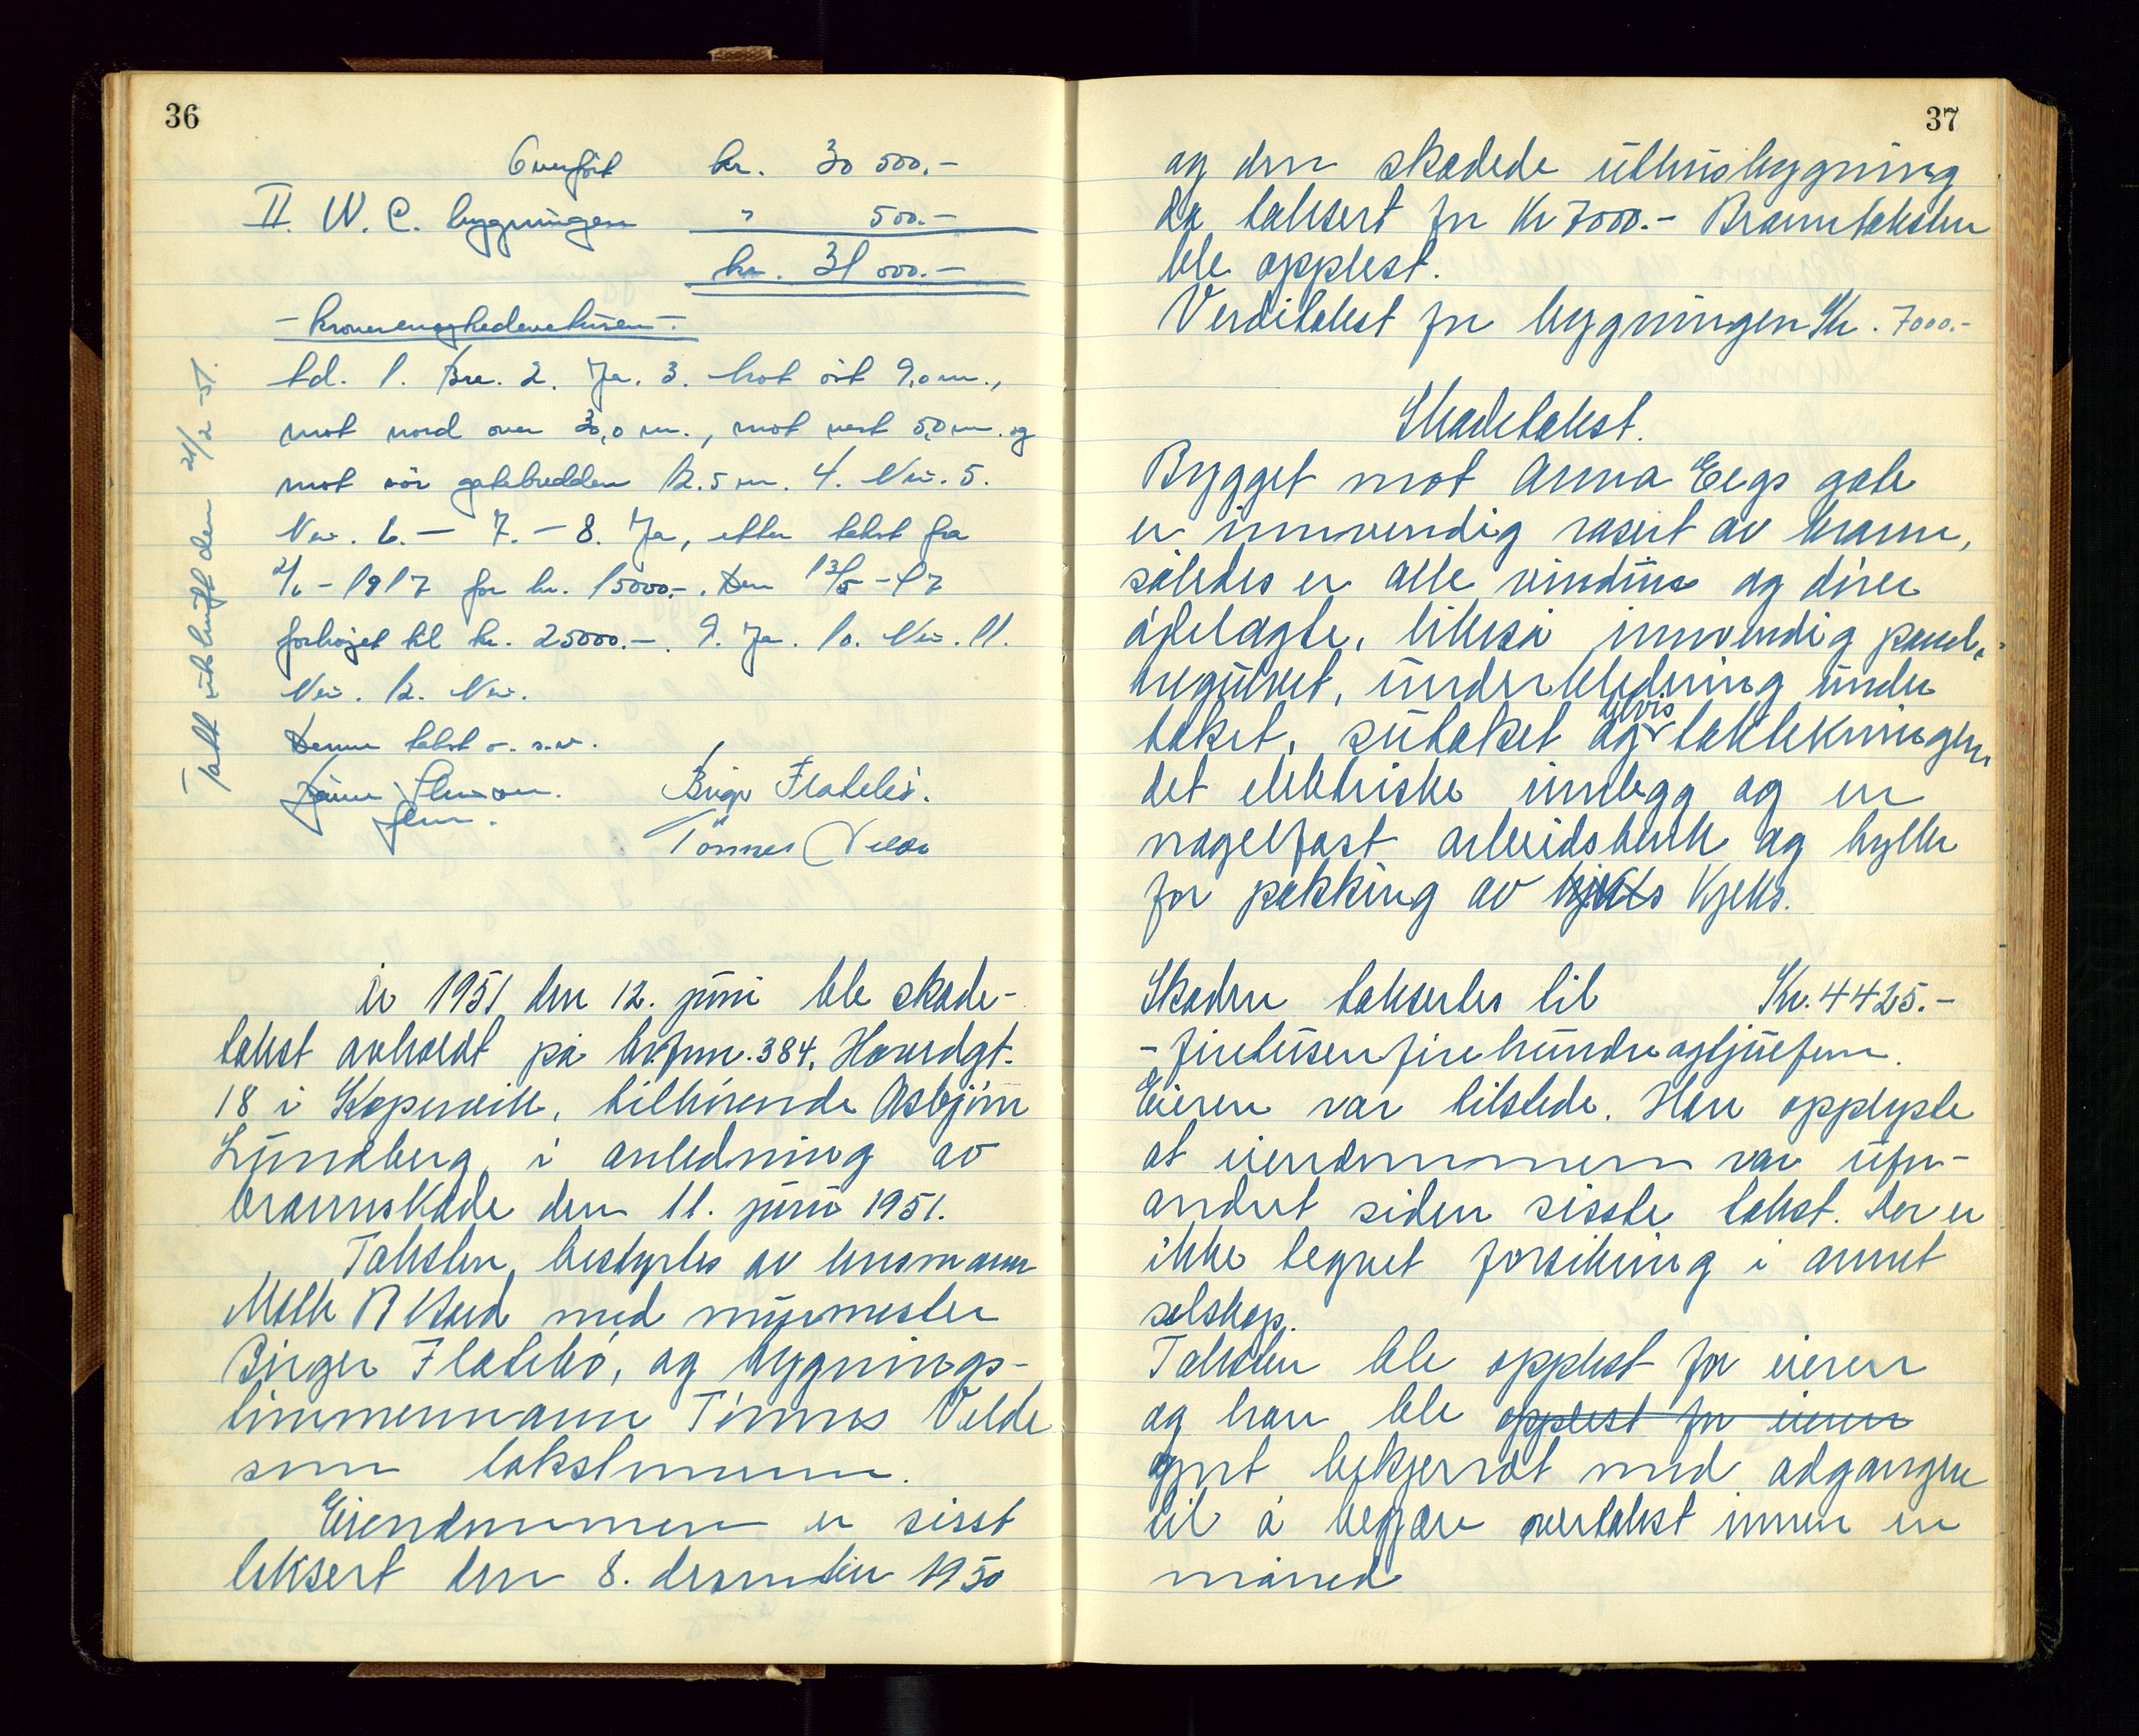 36
Overført kr. 30 500.-
II. W. C. bygningen " 500.-
kr. 31 000.-
- kroner enogtredevetusen -
td. 1. Bra. 2. Ja. 3. Mot øst 9,0 m.,
mot nord over 30,0 m., mot vest 5,0 m. og
mot sør gatebredden 12.5 m. 4. Nei. 5.
Nei. 6. - 7. - 8. Ja, etter takst fra
2/6 - 1917 for kr. 15000.-. Den 13/5 - 17
forhøjet til kr. 25000.-. 9. Ja. 10. Nei. 11.
Nei. 12. Nei.
Denne takst o. s. v.
Birger Flatebø.
Tønnes Velde
Tatt utskrift den 21/2 -51.
År 1951 den 12. juni ble skade-
takst avholdt på brfnr. 384, Hovedgt.
18 i Kopervik, tilhørende Asbjørn
Lundberg, i anledning av
brannskade den 11. juni 1951.
Taksten bestyrtes av lensmann
med murmester
Birger Flatebø, og bygnings-
tømmermann Tønnes Velde
som takstmenn.
Eiendommen er sisst
taksert den 8. desember 1950
37
og den skadede uthusbygning
da taksert for Kr 7000.- Branntaksten
ble opplest.
Verditakst for bygningen Kr. 7000.-
Skadetakst.
Bygget mot Anna Eegs gate
er innvendig rasert av brann,
således er alle vinduer og dører
ødelagte, likeså innvendig panel,
tregulvet, underkledning under
taket, sutaket og delvis taktekningen,
det elektriske innlegg og en
nagelfast arbeidsbenk og hylle
for pakking av kjeks Kjeks.
Skaden takseres til Kr. 4425.-
- firetusenfirehundreogtjuefem.
Eieren var tilstede. Han opplyste
at eiendommen var ufor-
andret siden sisste takst. Der er
ikke tegnet forsikring i annet
selskap.
Taksten ble opplest for eieren
og han ble opplest for eieren
gjort bekjendt med adgangen
til å begjære overtakst innen en
måned